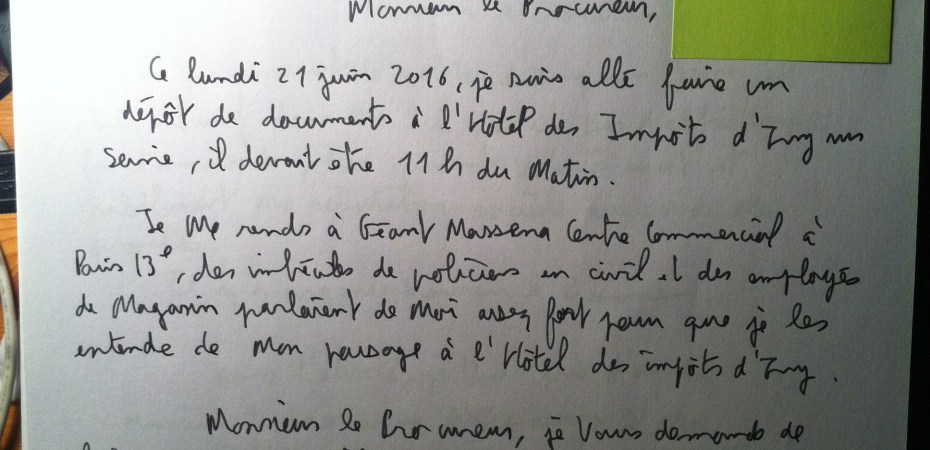 Monsieur le Procureur,
Ce lundi 21 juin 2016, je suis allé faire un
dépôt de documents à l'Hôtel des Impôts d'Ivry sur
Seine, il devait être 11 h du Matin.
Je Me rends à Géant Massena Centre Commercial à
Paris 13e, des imbéciles de policiers en civil et des employés
de Magasin parlaient de Moi assez fort pour que je les
entende de Mon passage à l'Hôtel des impôts d'Ivry.
Monsieur le Procureur, je Vous demande de